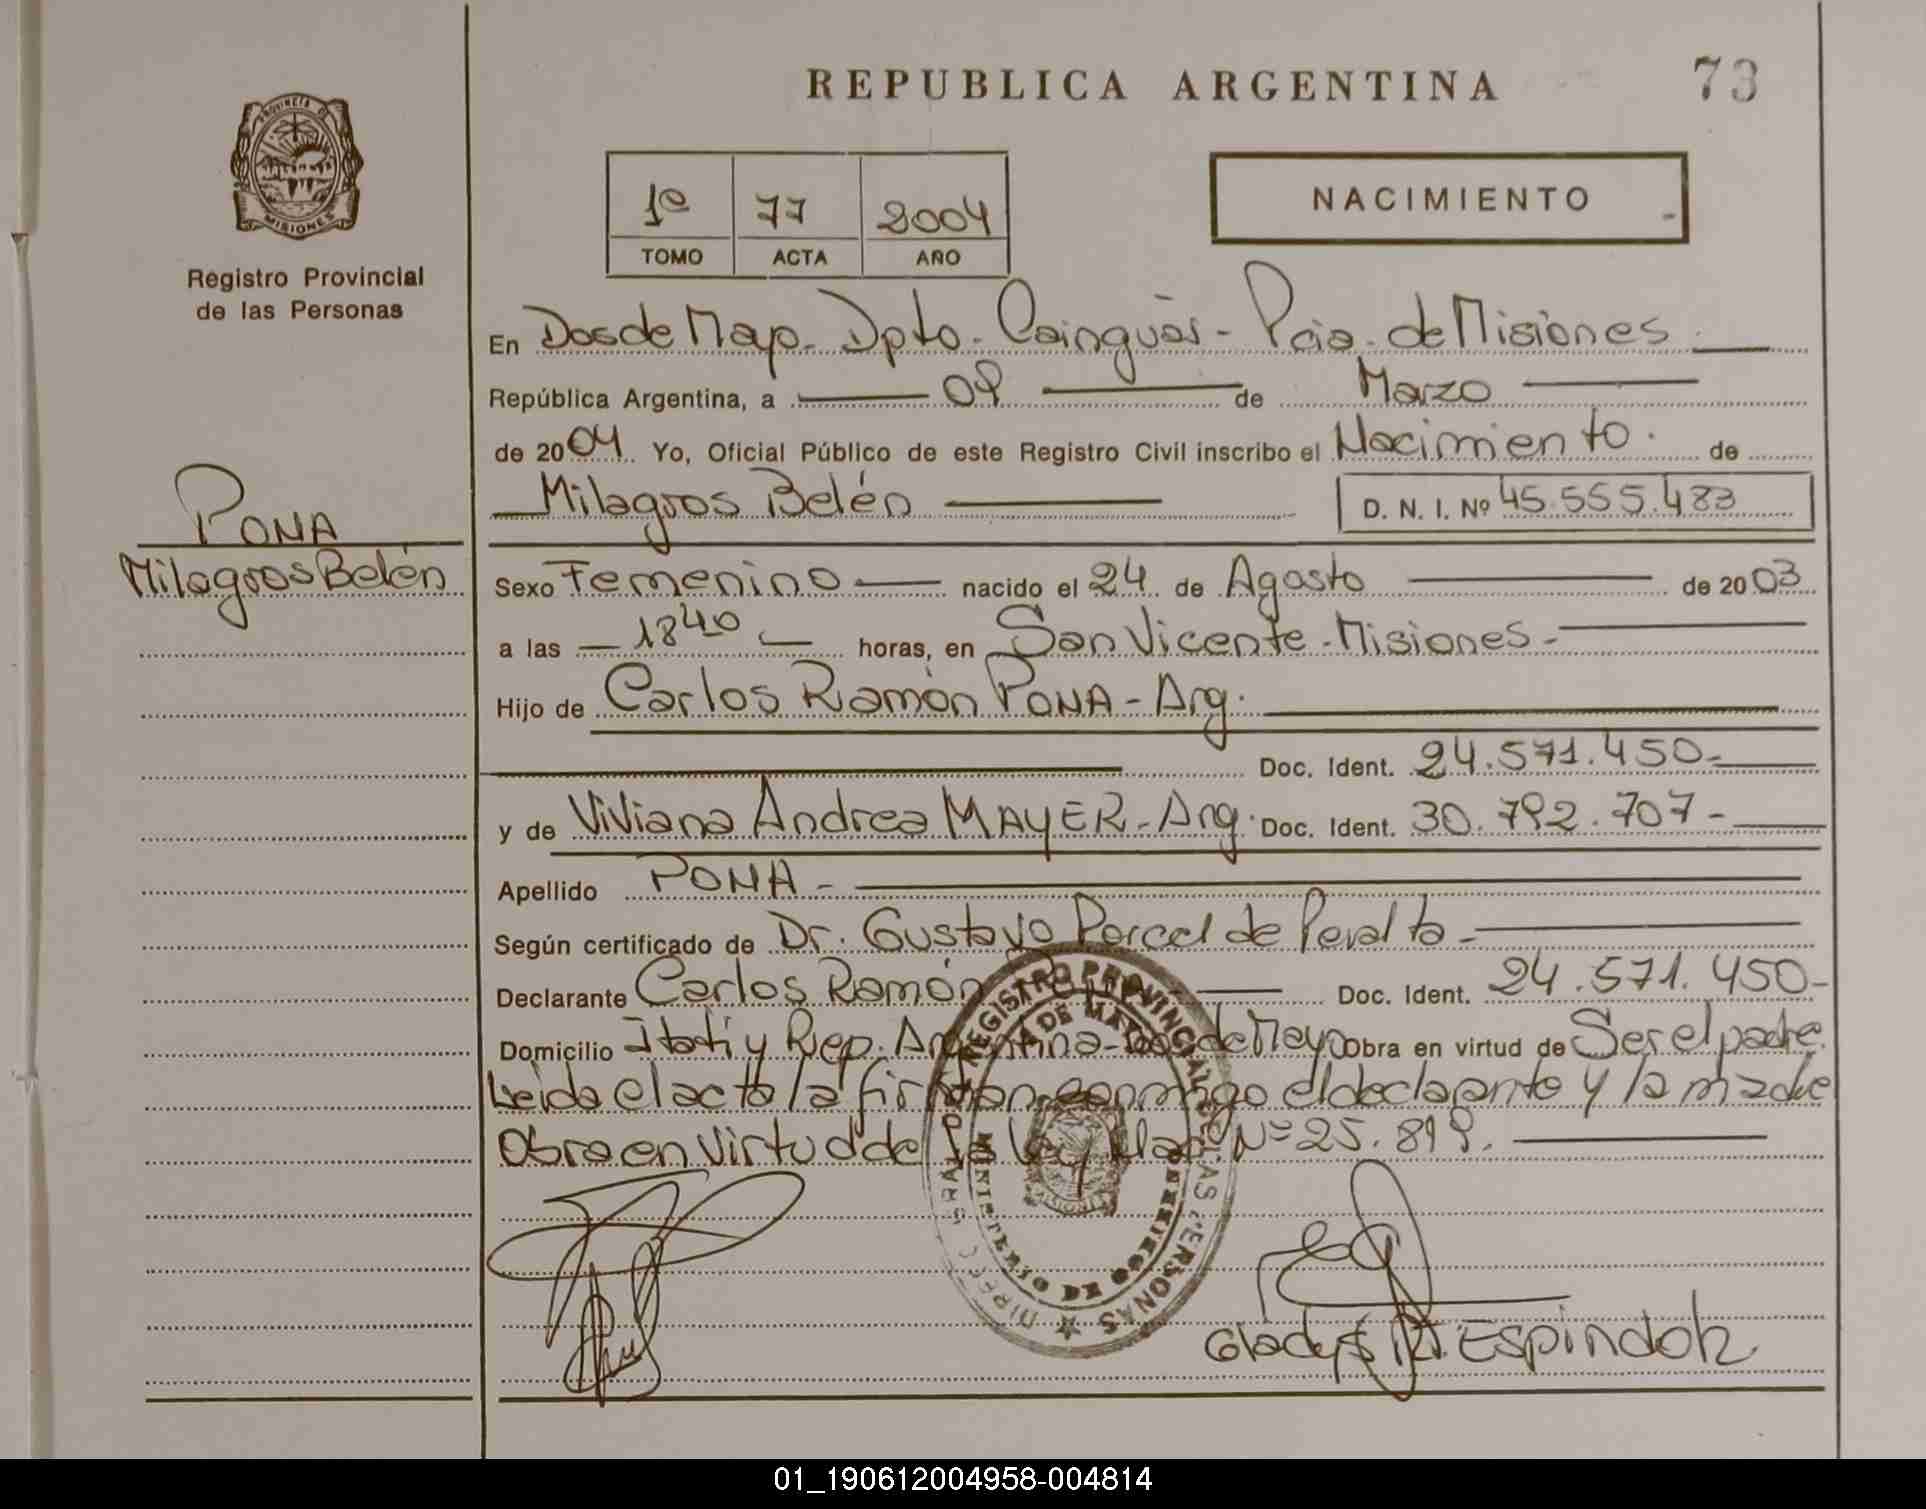 REPUBLICA ARGENTINA
73
PROVINCIA DE
MISIONES
Registro Provincial
de las Personas
1º 77 2004
TOMO ACTA AÑO
NACIMIENTO
En Dos de Mayo. Dpto. Cainguás - Pcia. de Misiones
República Argentina, a 09 de Marzo
de 2004 Yo, Oficial Público de este Registro Civil inscribo el Nacimiento. de
Milagros Belén D. N. I. Nº 45.555.483
PONA
Milagros Belén
Sexo Femenino nacido el 24 de Agosto de 2003
a las 18 40 horas, en San Vicente - Misiones -
Hijo de Carlos Ramón PONA - Arg.
Doc. Ident. 24.571.450-
y de Viviana Andrea MAYER - Arg. Doc. Ident. 30.792.707-
Apellido PONA -
Según certificado de Dr. Gustavo Porcel de Peralta -
Declarante Carlos Ramón Doc. Ident. 24.571.450-
Domicilio Itatí y Rep. Argentina - Dos de Mayo Obra en virtud de Ser el padre.
Leída el acta la firman conmigo el declarante y la madre
Obra en virtud de la Ley Nac. Nº 25.819.
REGISTRO PROVINCIAL DE LAS PERSONAS
MINISTERIO DE GOBIERNO
Gladys M. Espindola
01_190612004958-004814